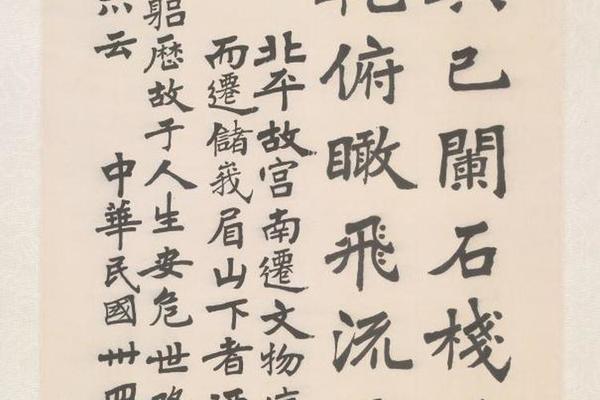 已闌石棧
俯瞰飛流
北平故宮南遷文物
而遷儲峩眉山下者
軀歷故于人生安危世
云
中華民國卅四